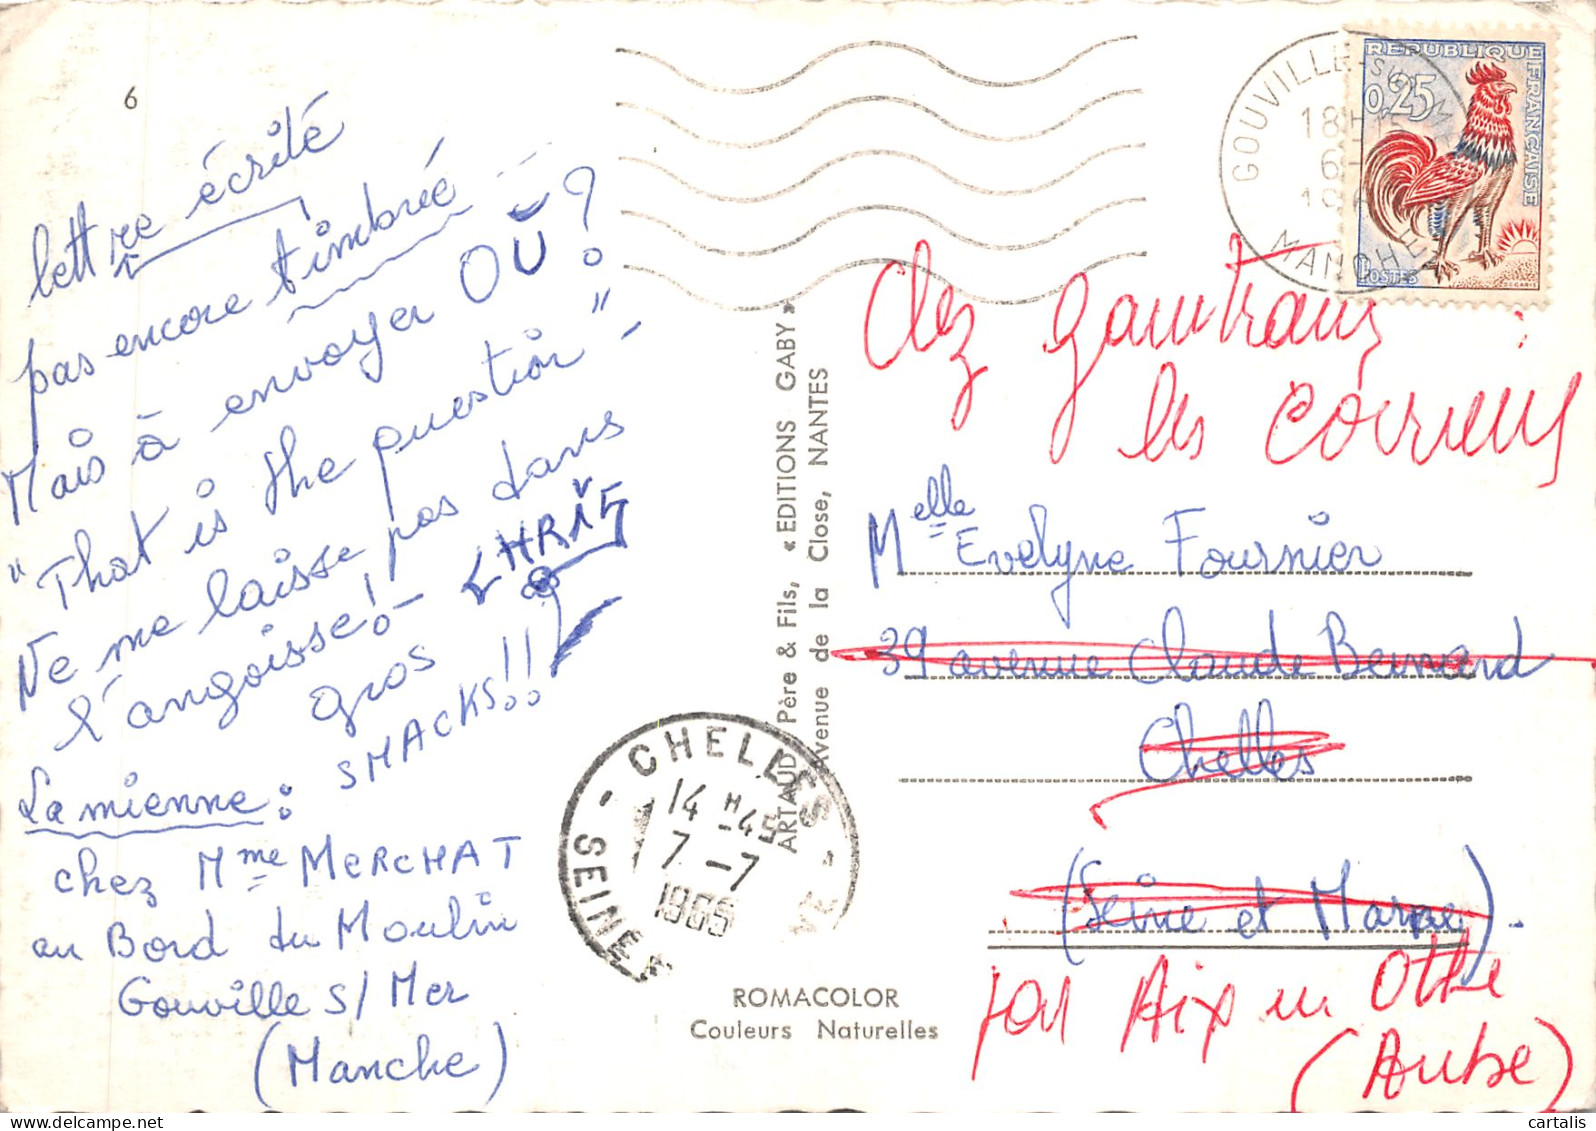 6
lettre écrité
pas encore timbrée
Mais à envoyer OÙ ?
"That is the question" -
Ne me laisse pas dans
l'angoisse! -
CHRIS
gros
SMACKS!!
La mienne :
chez Mme MERCHAT
au Bord du Moulin
Gouville s/ Mer
(Manche)
ARTAUD Père & Fils, « EDITIONS GABY »
Avenue de la Close, NANTES
CHELLES
14 H 45
7 - 7
1965
SEINE
ROMACOLOR
Couleurs Naturelles
GOUVILLE-SUR-M
18H
6
MANCHE
REPUBLIQUE FRANÇAISE
0,25
POSTES
DECARIS
chez :
les
Melle Evelyne Fournier
39 avenue Claude Bernard
Chelles
(Seine et Marne).
par Aix en Othe
(Aube)
cartalis